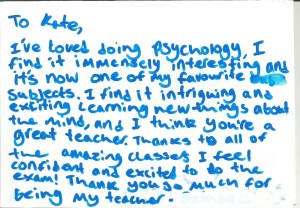 To Kate,
I've loved doing Psychology, I
find it immensely interesting and
it's now one of my favourite
subjects. I find it intriguing and
exciting learning new things about
the mind, and I think you're a
great teacher. Thanks to all of
the amazing classes I feel
confident and excited to do the
exam! Thank you so much for
being my teacher.